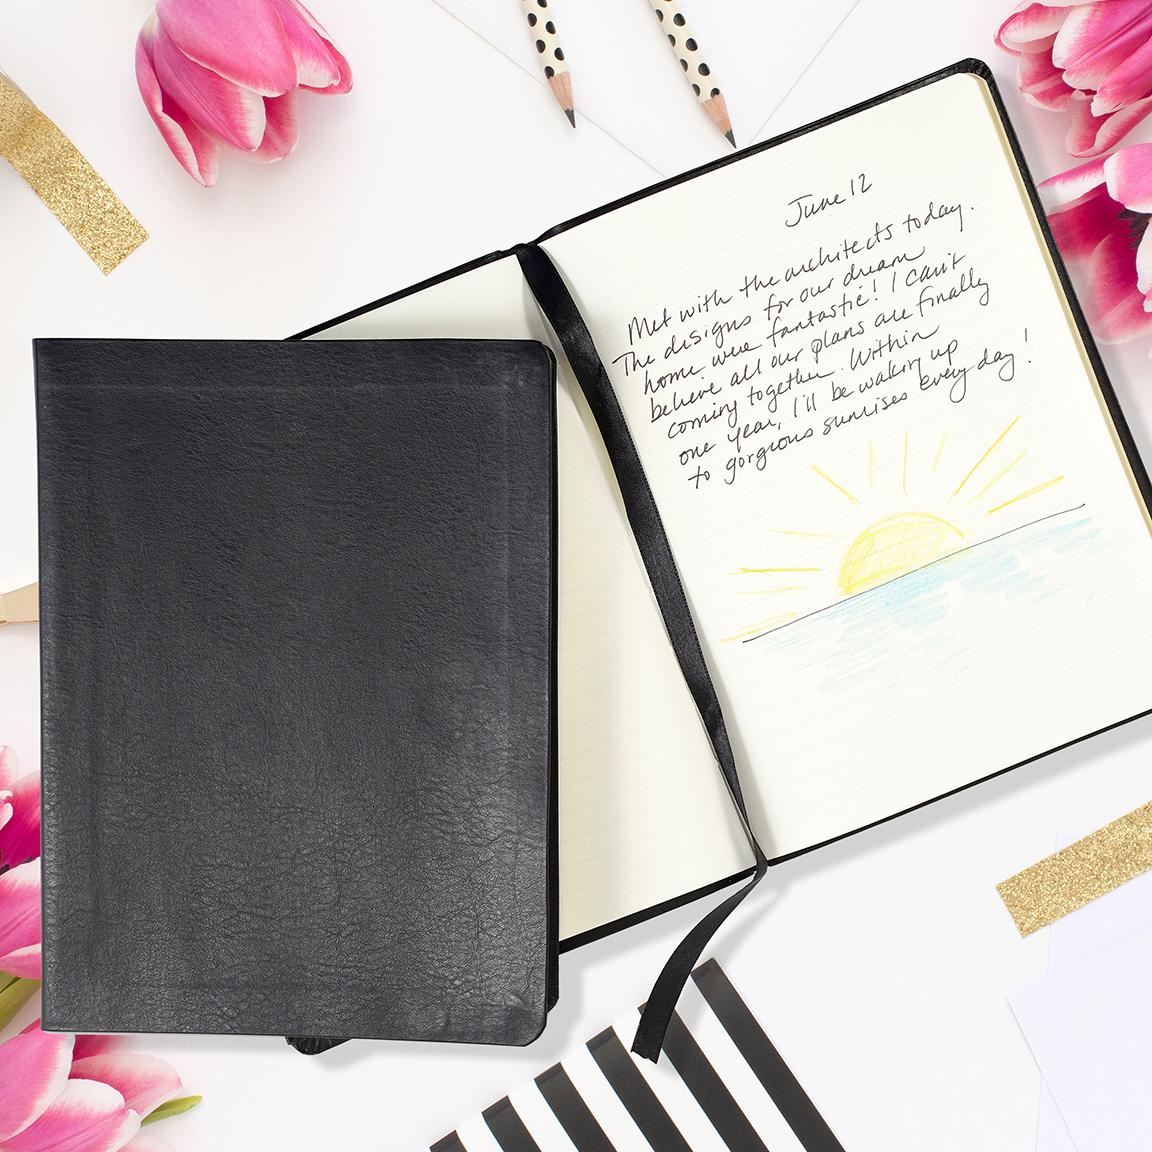 June 12
Met with the architects today.
The designs for our dream
home were fantastic! I can't
believe all our plans are finally
coming together. Within
one year, I'll be waking up
to gorgeous sunrises every day!